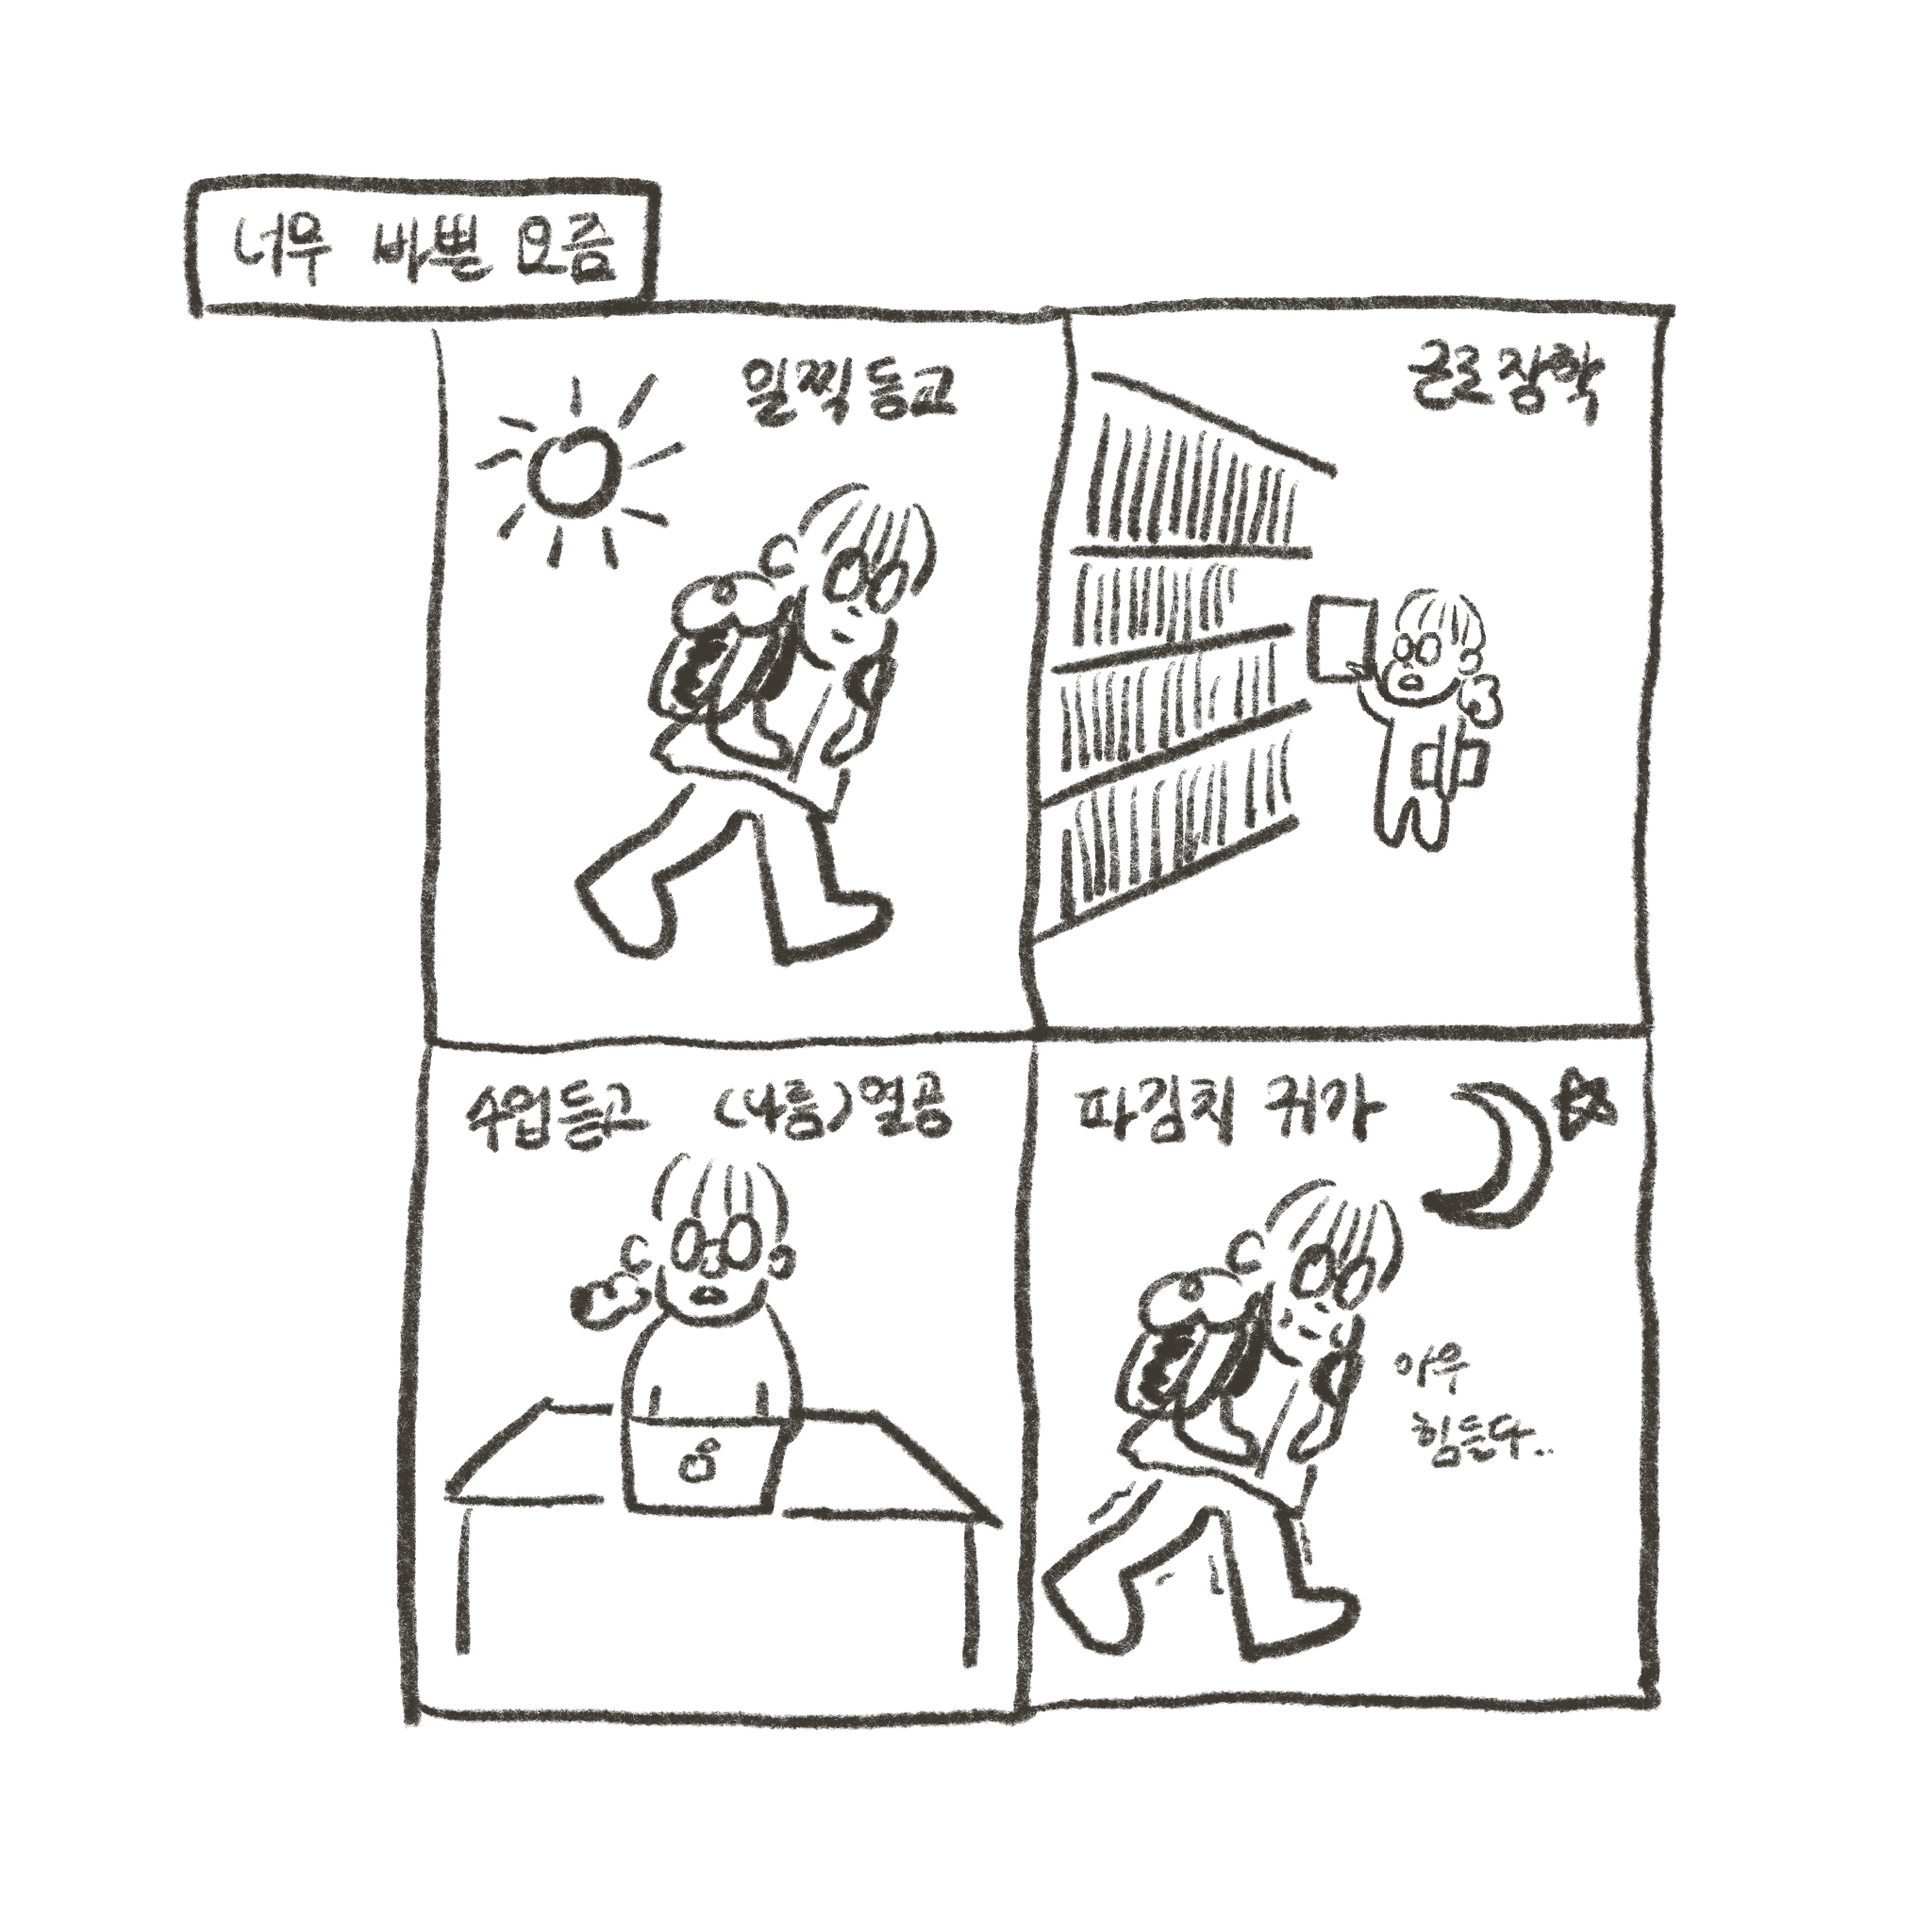 너무 바쁜 요즘
일찍 등교
근로장학
수업듣고 (나름)열공
파김치 귀가
아우
힘든다..